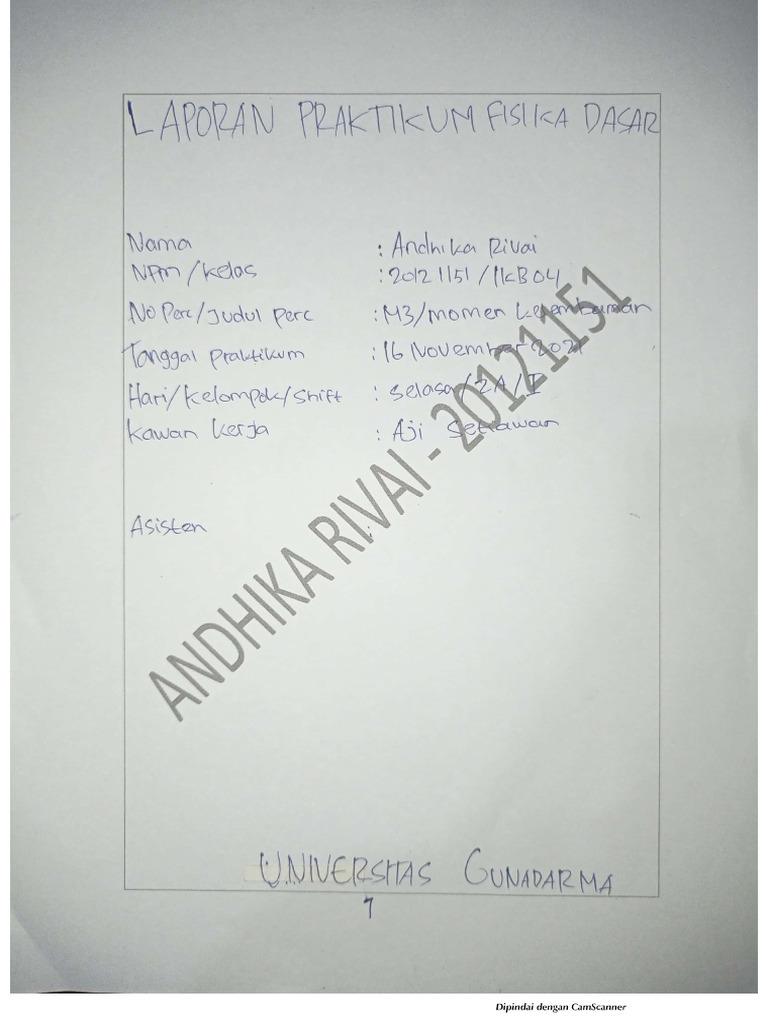 LAPORAN PRAKTIKUM FISIKA DASAR
Nama : Andhika Rivai
NPM/Kelas : 20121151/1KB04
No Perc/Judul Perc : M3/Momen Kelembaman
Tanggal Praktikum : 16 November 2021
Hari/Kelompok/Shift : Selasa/2A/I
Kawan Kerja : Aji Setiawan
Asisten :
ANDHIKA RIVAI - 20121151
UNIVERSITAS GUNADARMA
1
Dipindai dengan CamScanner